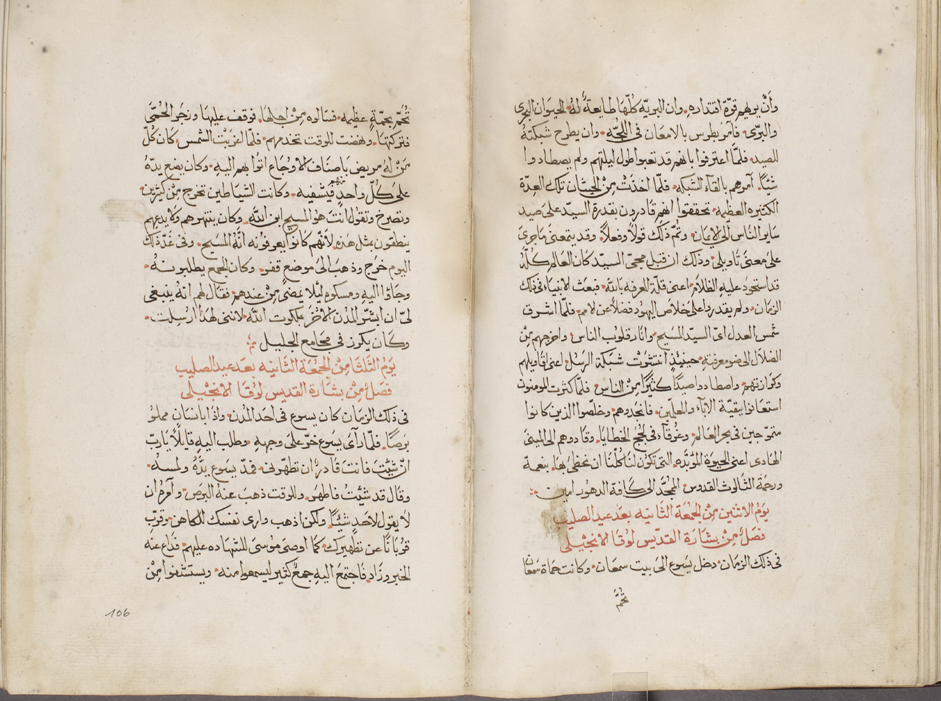 وأن يوهم قوّة اقتداره. وان البريه كلّها طايعةٌ لهُ الحيوان البحري
والبرّي. فامر بطرس بالامعان في اللجّه. وان يطرح شبكتهُ
للصيد. فلمّا اعترفوا بانهم قد تعبوا طول ليلتهم ولم يصطادوا
شيًا. امرهم بالقآء الشبكه. فلمّا اخذتْ مِنْ الحيتان تلك العدّة
الكثيره العظيمه. تحققوا انهم قادرون بقدرة السيّد على صيد
ساير الناس الى الايمان. وتمّ ذلك قولاً وفعلاً. وقد يتمعنى ماجرى
على معنى تاويلي. وذلك ان قبل مجي السيّد كان العالم كلّه
قد استحوذ عليهِ الظلام. اعني قلة المعرفه بالله. فبعث الانبيآء في ذلك
الزمان. ولم يقدروا على خلاص اليهود فضلاً عن الامم. فلمّا اشرق
شمس العدل اعني السيد المسيح. وانار قلوب الناس. واخرجهم مِنْ
الضلال الى ضو معرفتهِ. حينيذٍ انتشرت شبكة الرسل. اعني تعاليمهم
وكرازتهم. واصطادوا صيدًا كثيرًا مِنْ الناس. فلمّا كثرت المومنون
استعانوا ببقيّة الابآء والمعلمين. فانجدوهم. وخلّصوا الذين كانوا
متموّجين في بحر العالم. وغرقآء في لجج الخطايا. وقادوهم الى المينى
الهادى اعنى الحيوة المؤبّده. التي تكون لنا كُلّنا ان نحظى بها. بنعمة
ورحمة الثالوث القدوس. المجّد الى كافة الدهور امين
يوم الاثنين مِنْ الجمعة الثانيه بعد عيد الصليب
فصلٌ مِنْ بشارة القديس لوقا الانجيلي
في ذلك الزمان. دخل يسوع الى بيت سمعان. وكانت حماة سمعان
تحمّ
تُحَمّ بحمّةٍ عظيمه. فسالوه مِنْ اجلها. فوقف عليها وزجر الحُمَّى
فتركتها. ونهضت للوقت تخدمهم. فلمّا غربت الشمس. كان كُلّ
مَنْ لهُ مريض باصناف الاوجاع اتوا بهم اليهِ. وكان يضع يدهُ
على كُلّ واحدٍ منهم فيشفيه. وكانت الشياطين تخرج مِنْ كثيرين.
وتصرخ وتقول انت هو المسيح ابن الله. وكان ينتهرهم ولا يدعهم
ينطقون بمثل هذه. لانّهم كانوا يعرفونه انّهُ المسيح. وفي غد ذلك
اليوم خرج وذهب الى موضع قفر. وكان الجمع يطلبونهُ.
وجآوا اليهِ ومسكوه ليلا يمضي مِنْ عندهم. فقال لهم انهُ ينبغي
لي ان ابشّر المدن الاُخَر بملكوت الله. لانني لهذا ارسلت.
وكان يكرز في مجامع الجليل
يوم الثلثا مِنْ الجمعة الثانيه بعد عيد الصليب
فصلٌ مِنْ بشارة القديس لوقا الانجيلي
في ذلك الزمان كان يسوع في احد المدن. واذا بانسان مملو
برصًا. فلمّا رآى يسوع خرّ على وجهه. وطلب اليهِ قايلاً يارب
انْ شيتَ فانت قادرٌ ان تطهّرني. فمدّ يسوع يدهُ ولمسهُ.
وقال قد شيتُ فاطهر. وللوقت ذهب عنهُ البرص. وآمرهُ ان
لا يقول لاحدٍ شيًا. ولكن اذهب واري نفسك للكاهن. وقرّب
قربانًا عن تطهيرك. كما اوصى موسى للشهاده عليهم. فذاع عنه
الخبر وزاد. فاجتمع اليهِ جمعٌ كثير ليسمعوا منه. ويستشفوا مِنْ
106